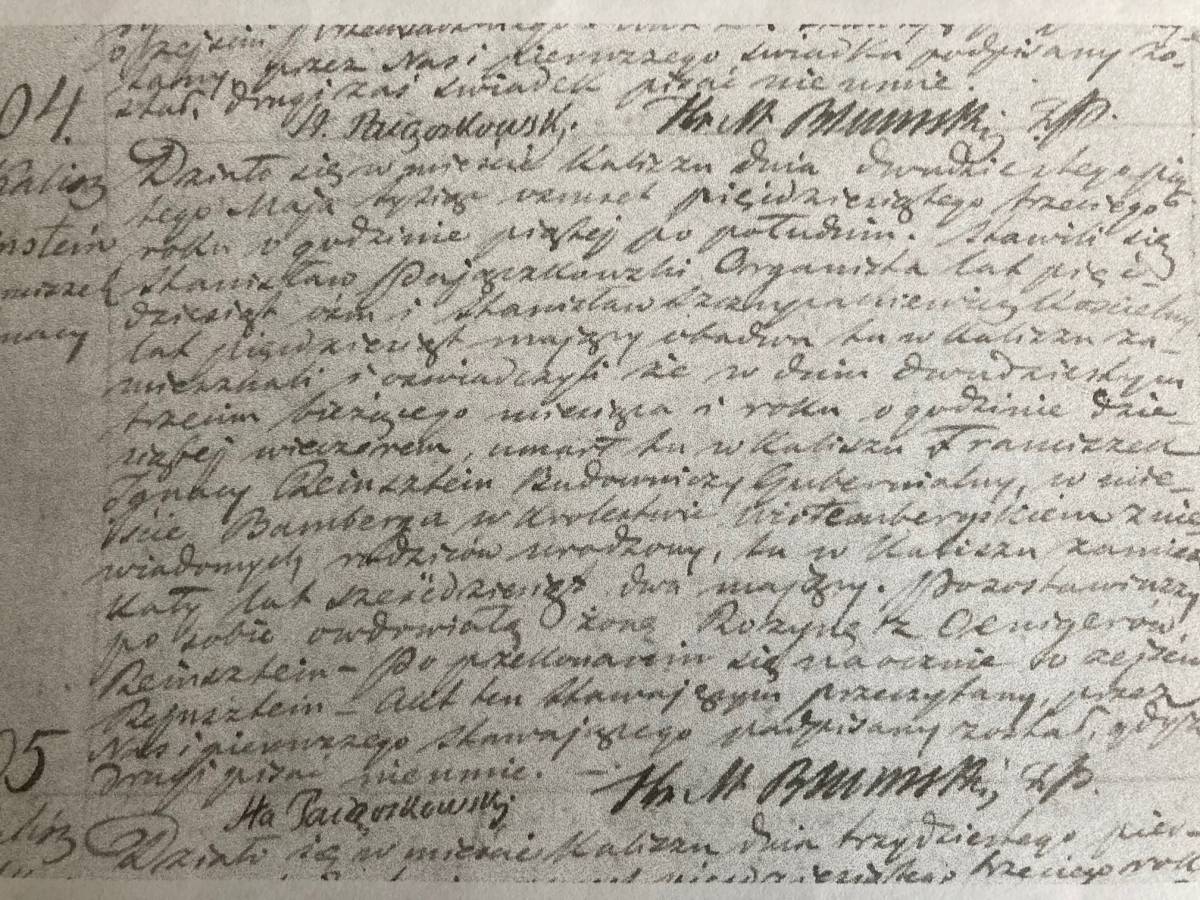 o zejściu
tamy, przez Nas i pierwszego świadka podpisany zo-
stał, drugi zaś świadek pisać nie umie.
04.
Kalisz
Działo się w mieście Kaliszu dnia dwudziestego pią-
tego Maja tysiąc osmset pięćdziesiątego trzeciego
roku o godzinie piątej po południu. Stawili się
Stanisław Pajączkowski Organista lat pięć-
dziesiąt ośm i Stanisław Kościelny
lat pięćdziesiąt mający obadwa tu w Kaliszu za-
mieszkali i oświadczyli że w dniu dwudziestym
trzecim bieżącego miesiąca i roku o godzinie dzie-
siątej wieczorem, umarł tu w Kaliszu Franciszek
Ignacy Reinsztein Budowniczy Gubernialny, w mie-
ście Bamberga w Królestwie Wirtemberyskiem z nie-
wiadomych rodziców urodzony, tu w Kaliszu zamiesz
kały lat sześćdziesiąt dwa mający. Pozostawiwszy
po sobie owdowiałą żonę Rozynę z Oenigerów
Reinsztein – Po przekonaniu się naocznie o zejściu
Rejnsztein – Akt ten stawającym przeczytany, przez
Nas i pierwszego stawającego podpisany został, gdyż
drugi pisać nie umie. –
05
Działo się w mieście Kaliszu dnia trzydziestego pierw
trzeciego rok